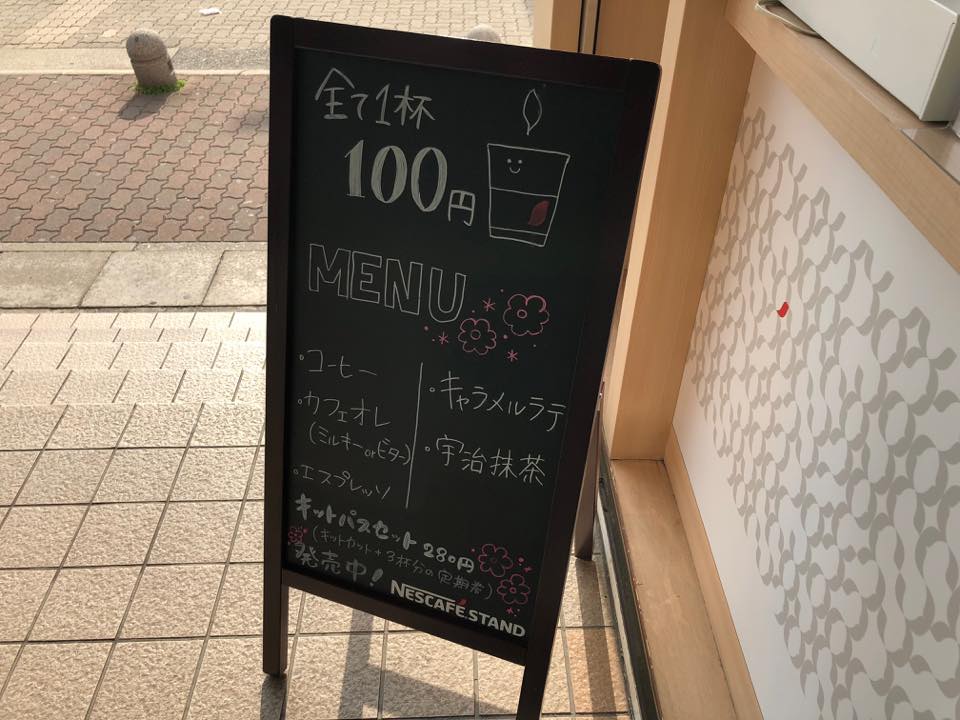 全て1杯
100円
MENU
・コーヒー
・カフェオレ
(ミルキーorビター)
・エスプレッソ
・キャラメルラテ
・宇治抹茶
キットパスセット 280円
(キットカット+3杯分の定期券)
発売中!
NESCAFÉ.STAND